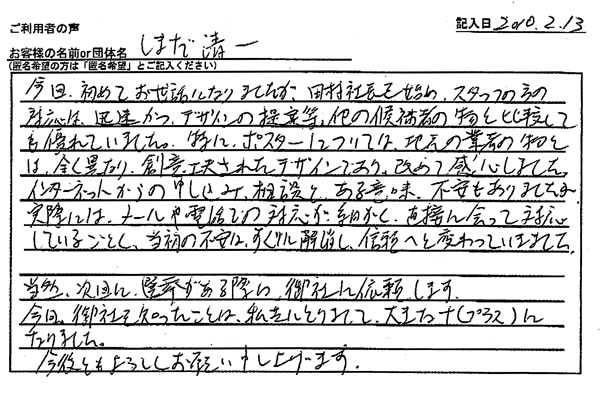 ご利用者の声
記入日 2010.2.13
お客様の名前or団体名 しまだ 清一
(匿名希望の方は「匿名希望」とご記入ください)
今回、初めてお世話になりましたが、田村社長を始め、スタッフの方の
対応は、迅速かつ、デザインの提案等、他の候補者の物と比較して
も優れていました。特に、ポスターについては、地元の業者の物と
は、全く異なり、創意工夫されたデザインであり、改めて感心しました。
インターネットからの申し込み、相談と、ある意味、不安もありましたが
実際には、メールや電話での対応が細かく、直接に会って対応
しているごとく、当初の不安は、すぐに解消し、信頼へと変わっていきました。
当然、次回に、選挙がある際は、御社に依頼します。
今回、御社を知ったことは、私共にとりまして、大きな十(プラス)に
なりました。
今後ともよろしくお願い申し上げます。